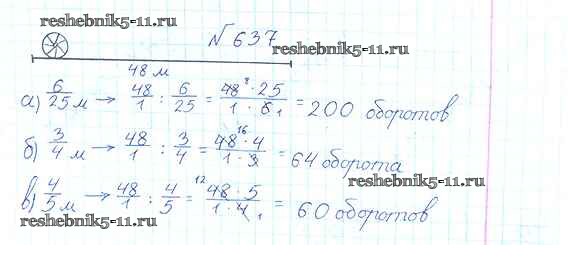 reshebnik5-11.ru
№ 637
reshebnik5-11.ru
48 м
а) 6/25 м → 48/1 : 6/25 = 48⁸ · 25 / 1 · 6₁ = 200 оборотов
б) 3/4 м → 48/1 : 3/4 = 48¹⁶ · 4 / 1 · 3 = 64 оборота
reshebnik5-11.ru
в) 4/5 м → 48/1 : 4/5 = 48¹² · 5 / 1 · 4₁ = 60 оборотов
reshebnik5-11.ru